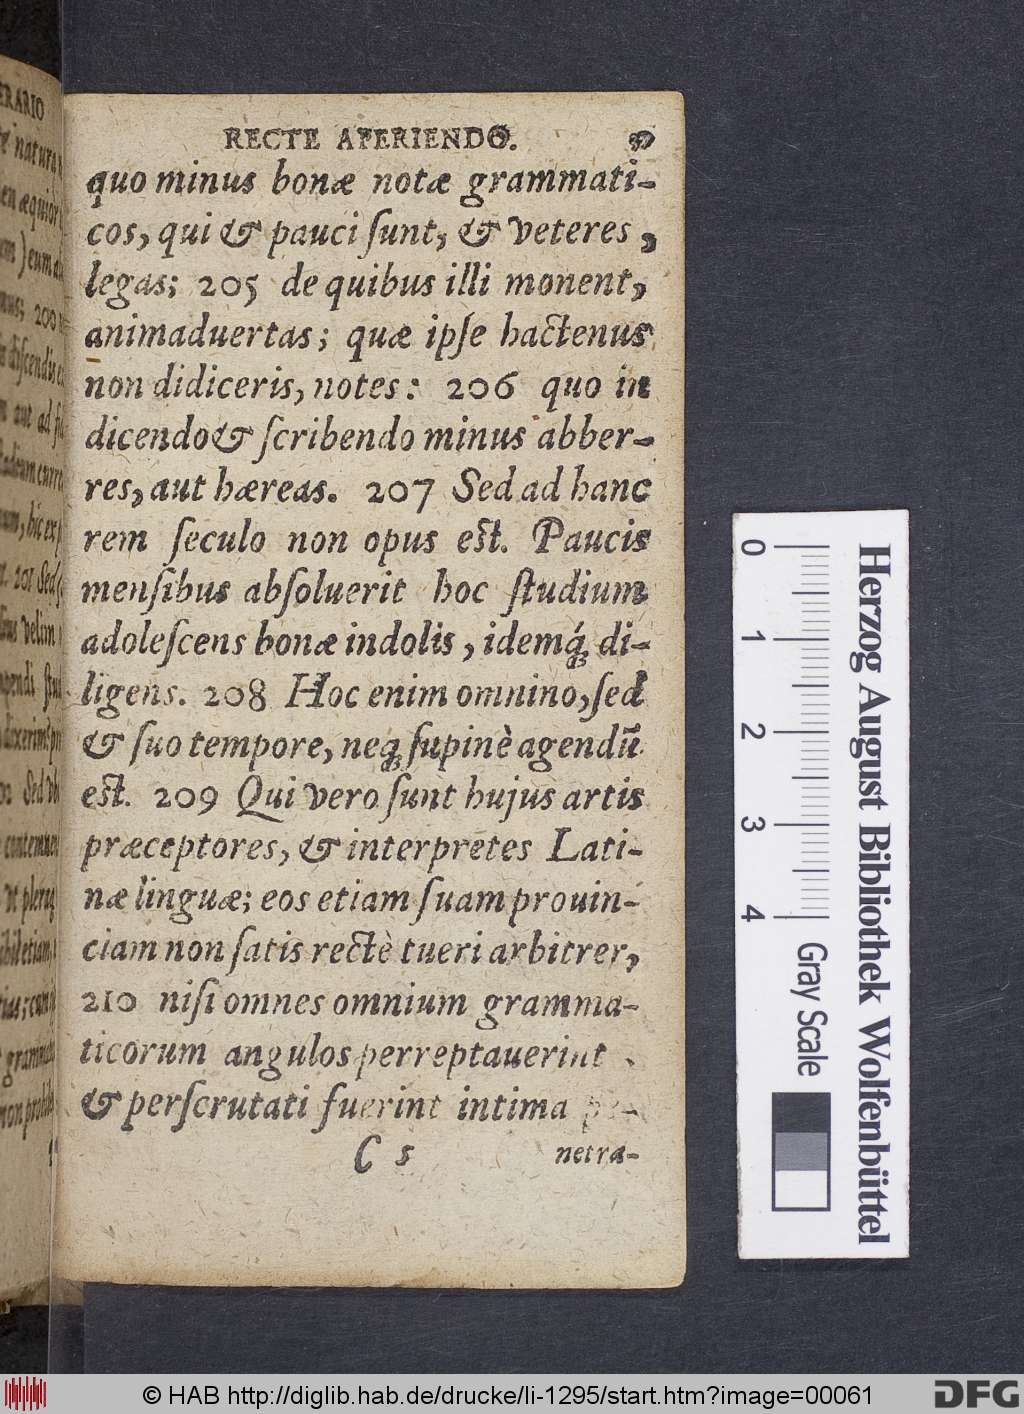 RECTE APERIENDO.
quo minus bonæ notæ grammati-
cos, qui & pauci ſunt, & veteres,
legas; 205 de quibus illi monent,
animaduertas; quæ ipſe hactenus
non didiceris, notes: 206 quo in
dicendo & ſcribendo minus abber-
res, aut hæreas. 207 Sed ad hanc
rem ſeculo non opus eſt. Paucis
menſibus abſoluerit hoc ſtudium
adoleſcens bonæ indolis, idemq́; di-
ligens. 208 Hoc enim omnino, ſed
& ſuo tempore, neq; ſupinè agendũ
eſt. 209 Qui vero ſunt hujus artis
præceptores, & interpretes Lati-
næ linguæ; eos etiam ſuam prouin-
ciam non ſatis rectè tueri arbitrer,
210 niſi omnes omnium gramma-
ticorum angulos perreptauerint
& perſcrutati fuerint intima pe-
C 5
netra-
ERARIO
0 1 2 3 4
Gray Scale
Herzog August Bibliothek Wolfenbüttel
© HAB http://diglib.hab.de/drucke/li-1295/start.htm?image=00061
DFG